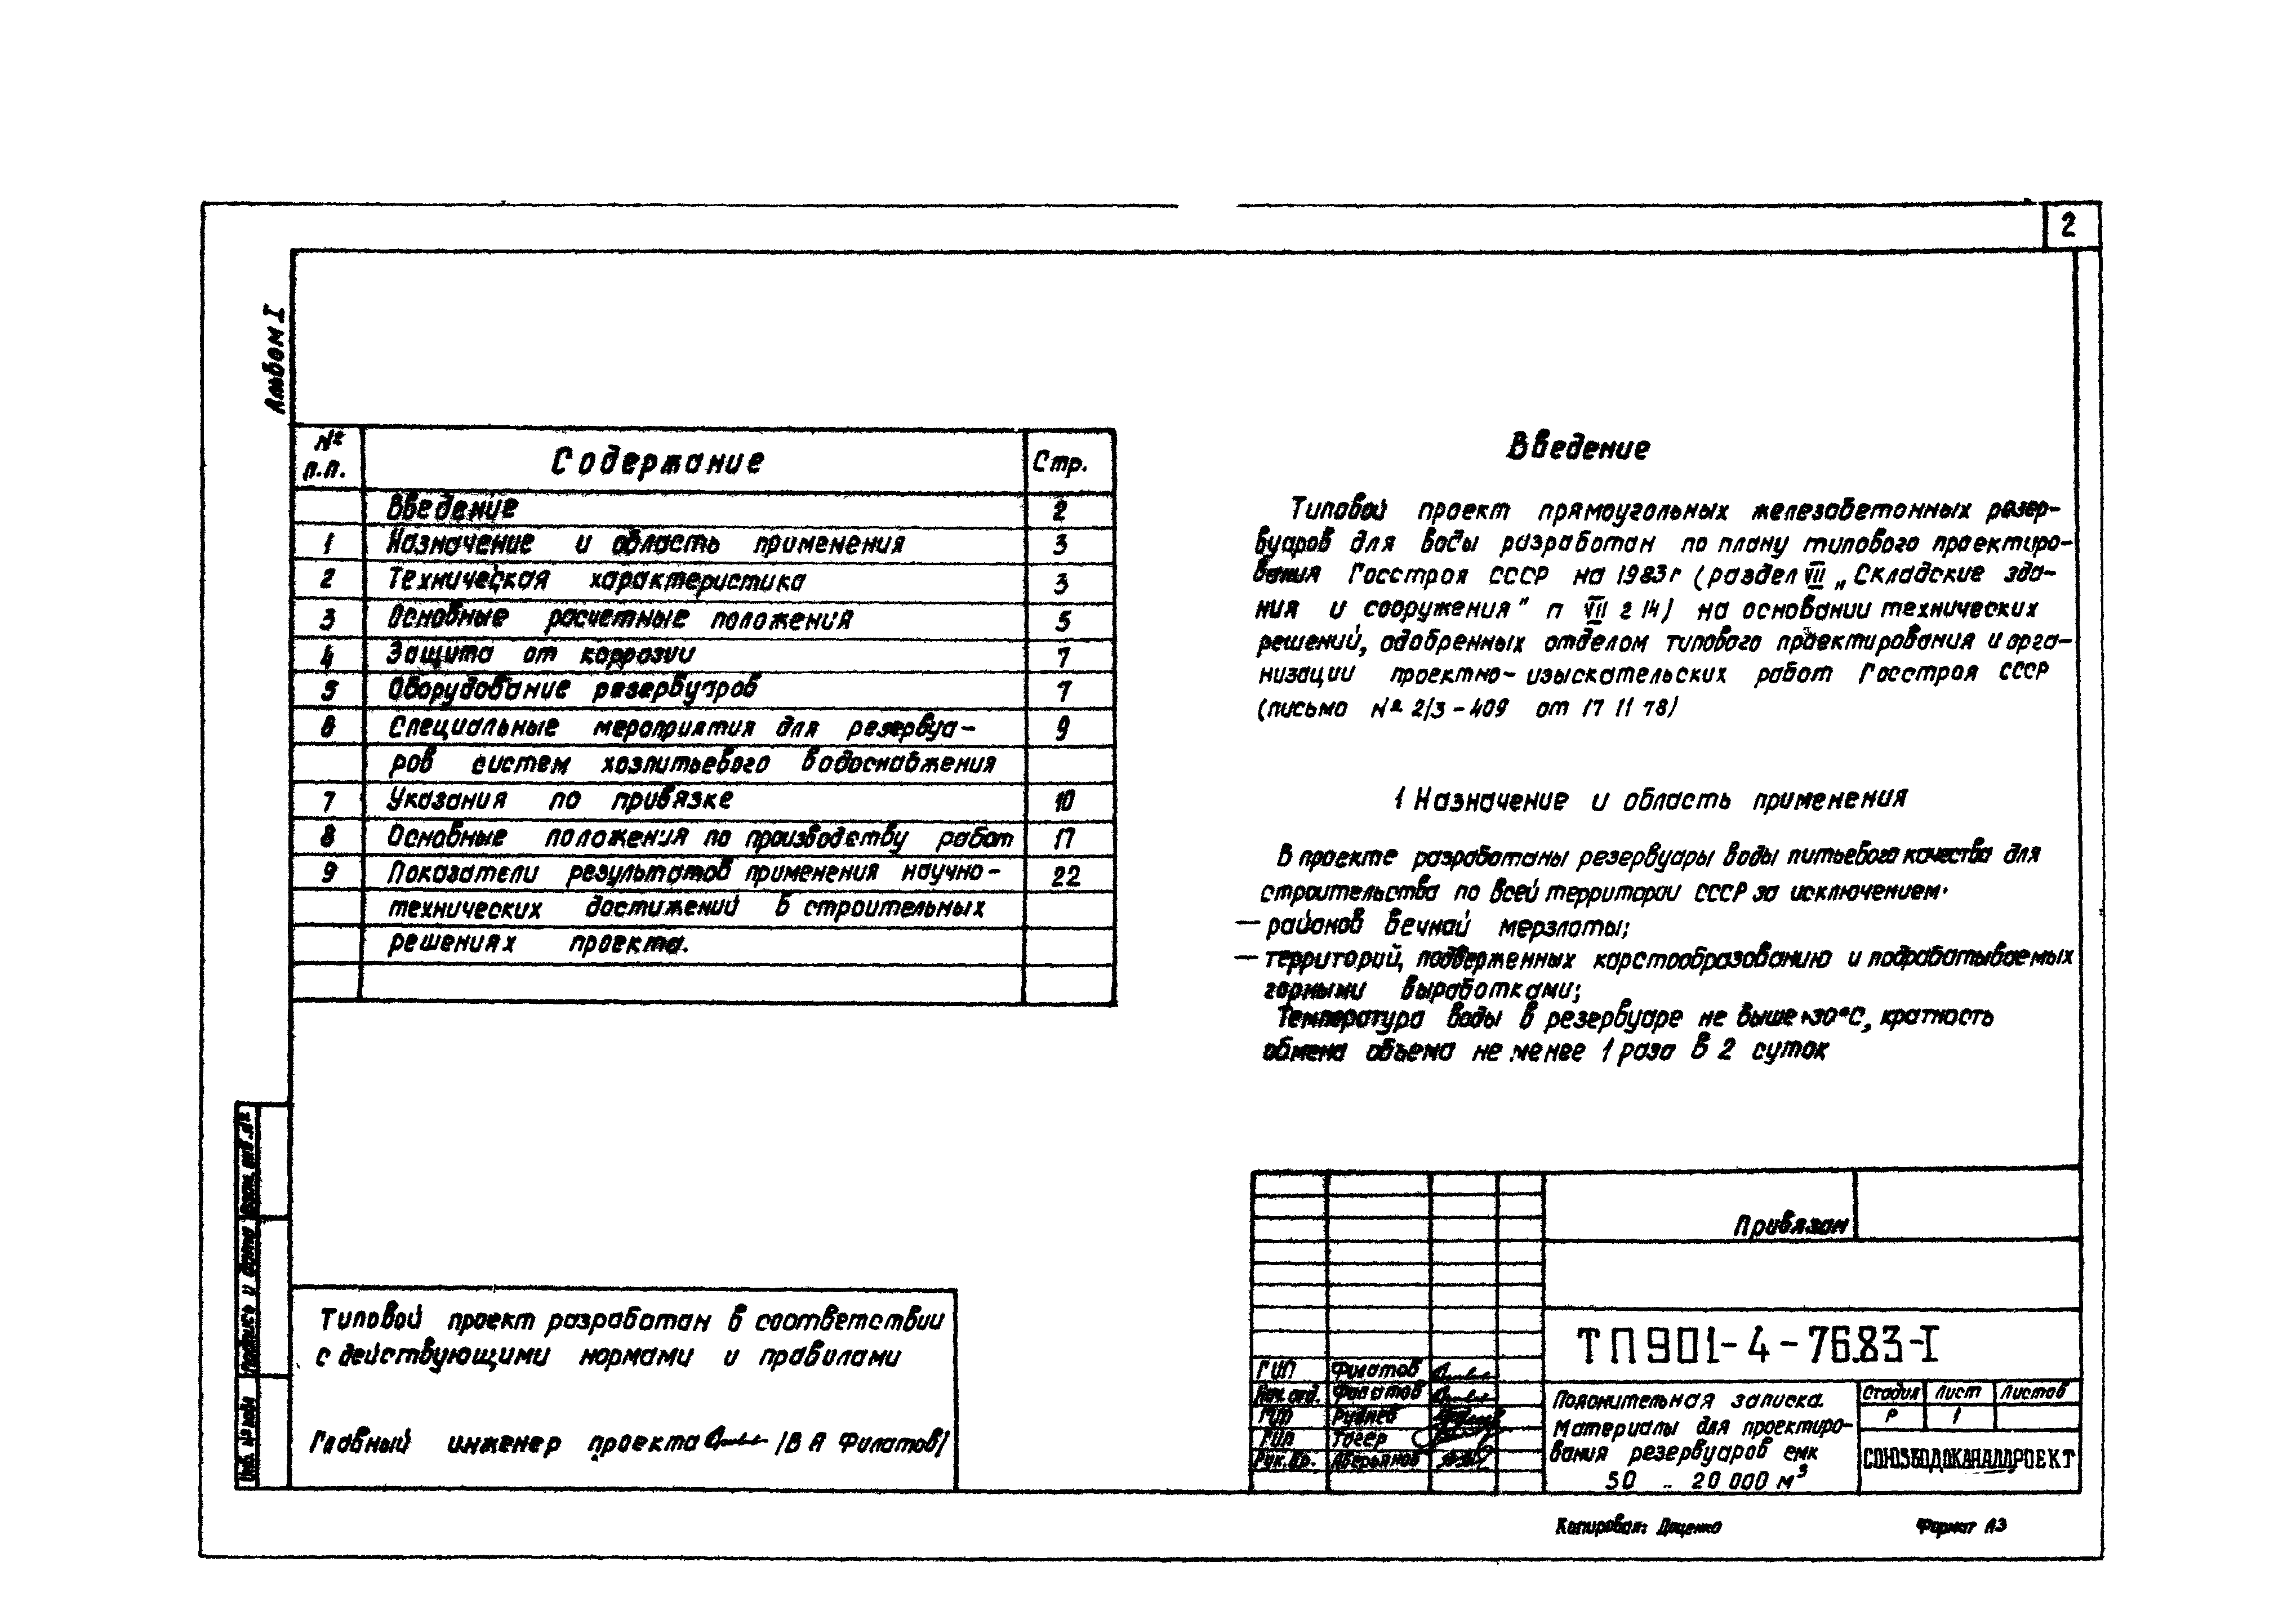 2
Альбом I
№ п.п. Содержание Стр.
Введение 2
1 Назначение и область применения 3
2 Техническая характеристика 3
3 Основные расчетные положения 5
4 Защита от коррозии 7
5 Оборудование резервуаров 7
6 Специальные мероприятия для резервуа- 9
ров систем хозпитьевого водоснабжения
7 Указания по привязке 10
8 Основные положения по производству работ 17
9 Показатели результатов применения научно- 22
технических достижений в строительных
решениях проекта.
Типовой проект разработан в соответствии
с действующими нормами и правилами
Главный инженер проекта /В А Филатов/
Введение
Типовой проект прямоугольных железобетонных резер-
вуаров для воды разработан по плану типового проектиро-
вания Госстроя СССР на 1983г (раздел VII „Складские зда-
ния и сооружения" п VII г 14) на основании технических
решений, одобренных отделом типового проектирования и орга-
низации проектно-изыскательских работ Госстроя СССР
(письмо № 2/3-409 от 17 11 78)
1 Назначение и область применения
В проекте разработаны резервуары воды питьевого качества для
строительства по всей территории СССР за исключением.
— районов вечной мерзлоты;
— территорий, подверженных карстообразованию и подрабатываемых
горными выработками;
Температура воды в резервуаре не выше +30°С, кратность
обмена объема не менее 1 раза в 2 суток
Привязан
ТП 901-4-76.83-I
ГИП Филатов
Нач.отд. Филатов
ГИП Руднев
ГИП Гоеер
Рук.бр. Аверьянов
Пояснительная записка.
Материалы для проектиро-
вания резервуаров емк
50 .. 20 000 м³
Стадия Лист Листов
Р 1
СОЮЗВОДОКАНАЛПРОЕКТ
Взам. инв. №
Подпись и дата
Инв. № подл
Копировал: Доценко Формат А3